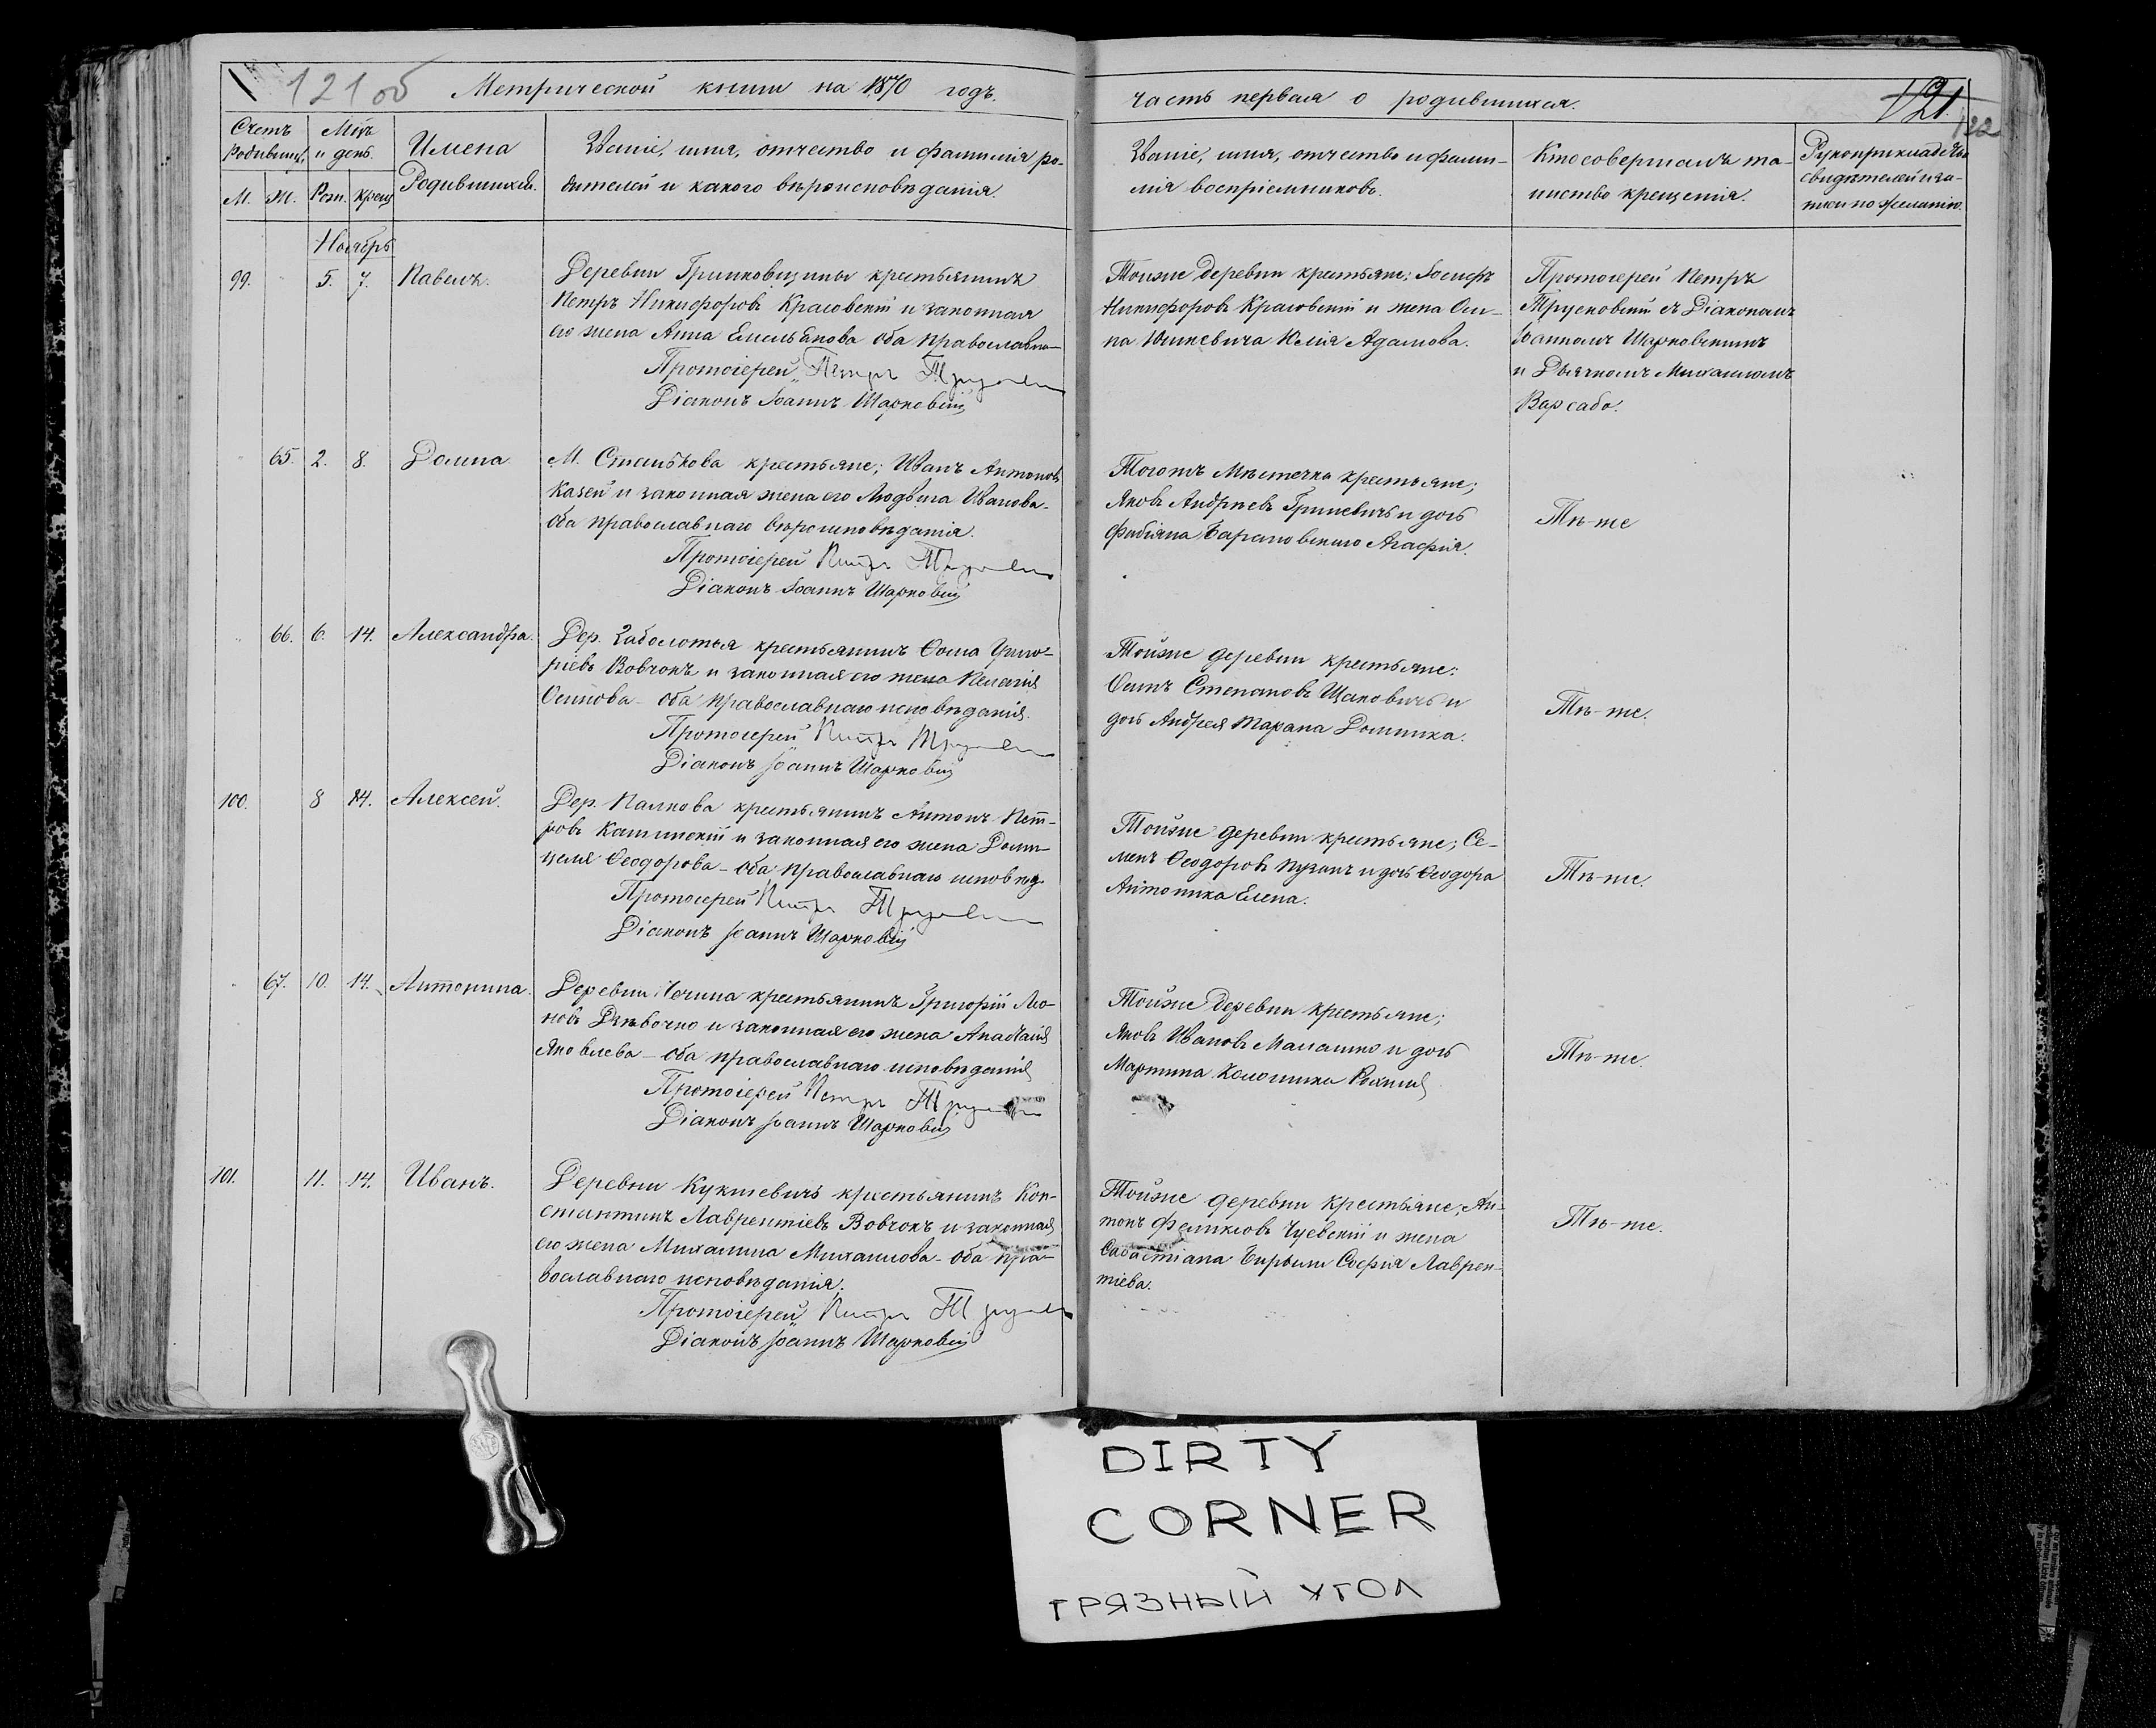 121 об
Метрической книги на 1870 годъ.
Счетъ родившихся
М. Ж.
Мѣсяцъ и день.
Рож. Крещ
Имена
Родившихся.
Званіе, имя, отчество и фамилія ро-
дителей и какого вѣроисповѣданія.
Ноябрь
99. 5. 7. Павелъ.
Деревни Гринковщины крестьянинъ
Петръ Никифоровъ Красовскій и законная
его жена Анна Емельянова оба православна-
Протоіерей Петръ
Діаконъ Іоаннъ Шарковскій
65. 2. 8. Домна.
М. Станькова крестьяне; Иванъ Антоновъ
Казей и законная жена его Людвига Иванова-
оба православнаго вѣроисповѣданія.
Протоіерей Петръ
Діаконъ Іоаннъ Шарковскій
66. 6. 14. Александра.
Дер. Заболотья крестьянинъ Ѳома Григо-
ріевъ Вовчокъ и законная его жена Пелагія
Осипова - оба православнаго исповѣданія.
Протоіерей Петръ
Діаконъ Іоаннъ Шарковскій
100. 8 14. Алексей.
Дер. крестьянинъ Антонъ Пет-
ровъ и законная его жена Доми-
целя Ѳеодорова - оба православнаго исповѣд.
Протоіерей Петръ
Діаконъ Іоаннъ Шарковскій
67. 10. 14. Антонина.
Деревни крестьянинъ Григорій
и законная его жена Анастасія
Яковлева - оба православнаго исповѣданія
Протоіерей Петръ
Діаконъ Іоаннъ Шарковскій
101. 11. 14. Иванъ.
Деревни Кукшевичъ крестьянинъ Кон-
стантинъ Лаврентіевъ Вовчокъ и законная
его жена Михалина Михаилова - оба пра-
вославнаго исповѣданія.
Протоіерей Петръ
Діаконъ Іоаннъ Шарковскій
часть первая о родившихся.
121.
122
Званіе, имя, отчество и фами-
лія воспріемниковъ.
Кто совершалъ та-
инство крещенія.
Рукоприкладство
свидѣтелей и за-
писи по желанію.
Тойже деревни крестьяне; Іосифъ
Никифоровъ Красовскій и жена Оси-
па Юшкевича Юлія Адамова.
Протоіерей Петръ
Трусковскій съ Діакономъ
Іоанномъ Шарковскимъ
и Дьячкомъ Михаиломъ
Варсабо.
Тогожъ Мѣстечка крестьяне;
Яковъ Андреевъ Гриневичъ и дочь
Фабіяна Барановскаго Агафія.
Тѣ-же
Тойже деревни крестьяне:
Осипъ Степановъ и
дочь Андрея Тарана Доминика.
Тѣ-же.
Тойже деревни крестьяне; Се-
менъ Ѳеодоровъ и дочь Ѳеодора
Антоника Елена.
Тѣ-же.
Тойже деревни крестьяне;
Яковъ Ивановъ Малашко и дочь
Мартина
Тѣ-же.
Тойже деревни крестьяне; Ан-
тонъ Феликсовъ и жена
Савастіана София Лаврен-
тіева.
Тѣ-же.
DIRTY
CORNER
ГРЯЗНЫЙ УГОЛ